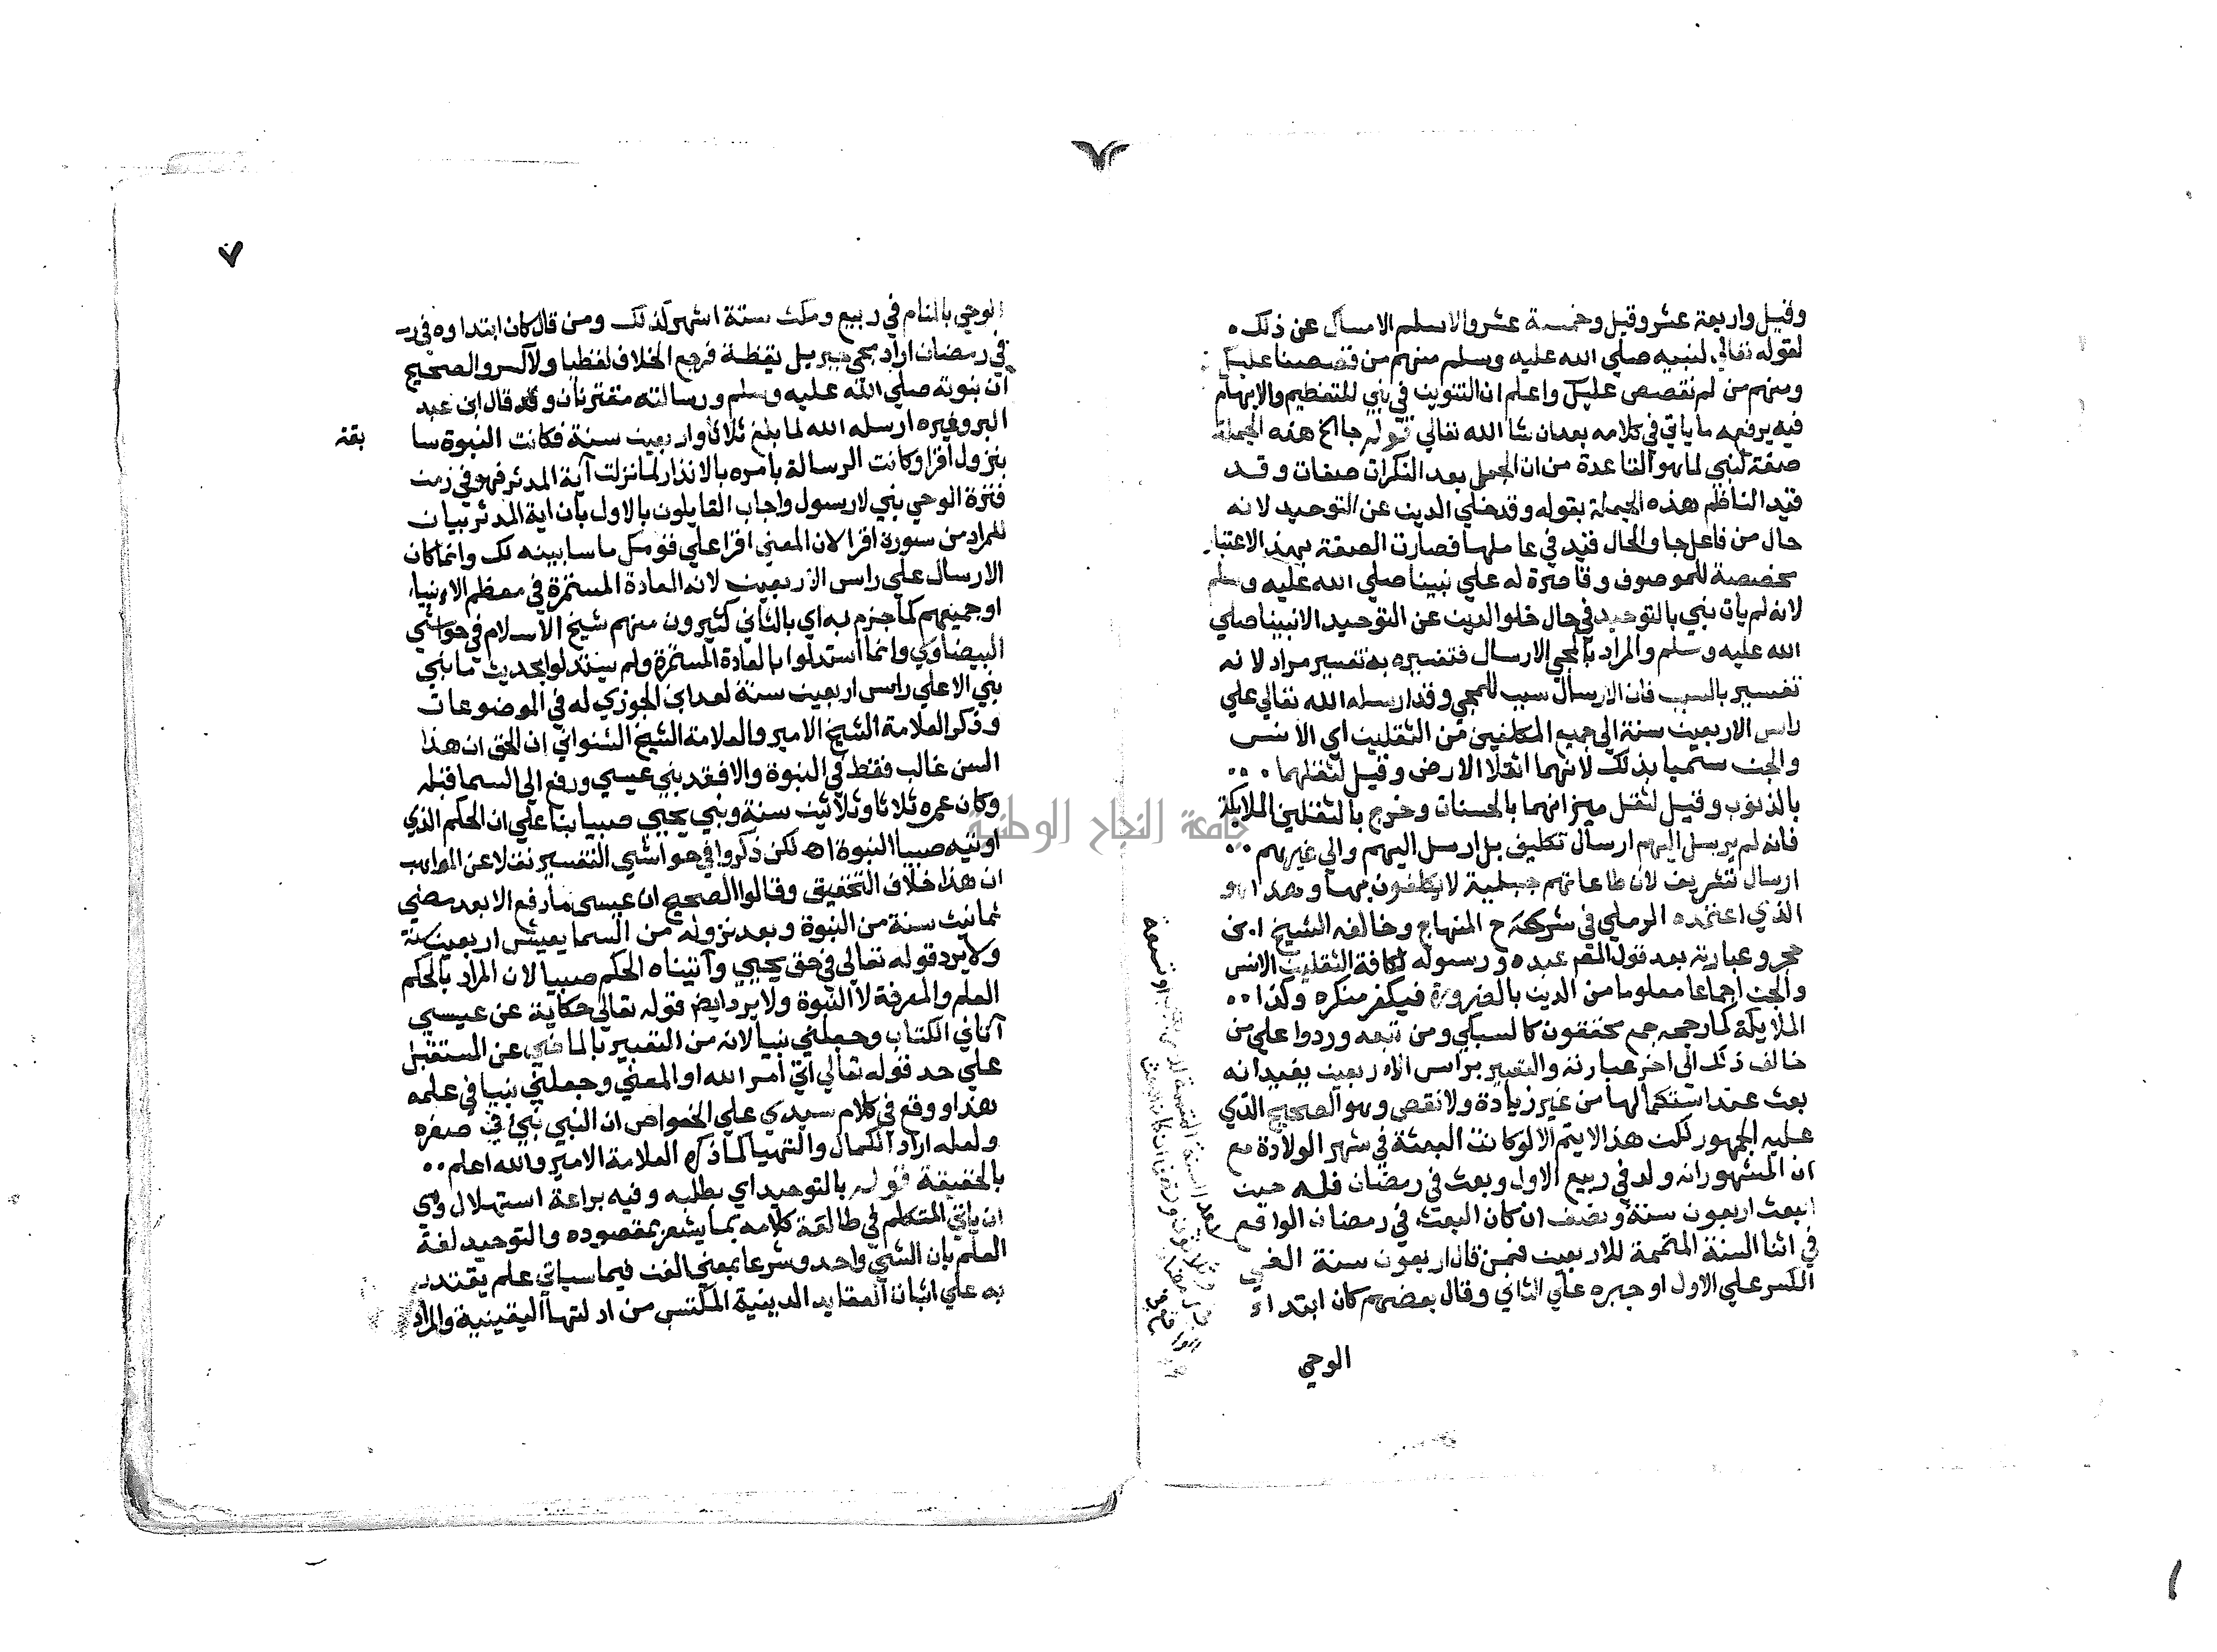 وقيل واربعة عشر وقيل وخمسة عشر والاسلم الامساك عن ذلك
لقوله تعالي لنبيه صلي الله عليه وسلم منهم من قصصنا عليك
ومنهم من لم نقصص عليك واعلم ان التنوين في نبي للتعظيم والابهام
فيه يرفعه ما ياتي في كلامه بعد ان شا الله تعالي قوله جا الخ هذه الجملة
صفة لنبي لما هو القاعدة من ان الجمل بعد النكرات صفات وقد
قيد الناظم هذه الجملة بقوله وقد خلي الدين عن التوحيد لانه
حال من فاعل جا والحال قيد في عاملها فصارت الصفة بهذ الاعتبار
مخصصة للموصوف وقاصرة له علي نبينا صلي الله عليه وسلم
لانه لم يات نبي بالتوحيد في حال خلو الدين عن التوحيد الا نبينا صلي
الله عليه وسلم والمراد بالمجي الارسال فتفسيره به تفسير مراد لانه
تفسير بالسبب فان الارسال سبب للمجي وقد ارسله الله تعالي علي
راس الاربعين سنة الي جميع المكلفين من الثقلين اي الانس
والجن سميا بذلك لانهما اثقلا الارض وقيل لثقلهما
بالذنوب وقيل لثقل ميزانهما بالحسنات وخرج بالثقلين الملايكة
فانه لم يرسل اليهم ارسال تكليف بل ارسل اليهم والي غيرهم
ارسال تشريف لان طاعاتهم جبلية لا يكلفون بها وهذا هو
الذي اعتمده الرملي في شرح المنهاج وخالفه الشيخ ابن
حجر وعبارته بعد قول المص عبده ورسوله لكافة الثقلين الانس
والجن اجماعا معلوما من الدين بالضرورة فيكفر منكره وكذا
الملايكة كما رجحه جمع محققون كالسبكي ومن تبعه وردوا علي من
خالف ذلك الي اخر عبارته والتعبير براس الاربعين يفيد انه
بعث عند استكمالها من غير زيادة ولا نقص وهو الصحيح الذي
عليه الجمهور لكن هذا لا يتم الا لو كانت البعثة في شهر الولادة مع
ان المشهور انه ولد في ربيع الاول وبعث في رمضان فله حين
البعث اربعون سنة ونصف ان كان البعث في رمضان الواقع
في اثنا السنة المتممة للاربعين فمن قال اربعون سنة الغي
الكسر علي الاول او جبره علي الثاني وقال بعضهم كان ابتداء
الوحي
٧
الوحي بالمنام في ربيع ومكث ستة اشهر لذلك ومن قال كان ابتداوه في ر
في رمضان اراد مجي جبريل يقظة فرجع الخلاف لفظيا ولا كسر والصحيح
ان نبوته صلي الله عليه وسلم ورسالته مقترنان وقد قال ابن عبد
البر وغيره ارسله الله لما بلغ ثلاثا واربعين سنة فكانت النبوة سا
بقة
بنزول اقرا وكانت الرسالة بامره بالانذار لما نزلت آية المدثر فهو في زمن
فترة الوحي نبي لا رسول واجاب القايلون بالاول بان اية المدثر بيان
للمراد من سورة اقرا لان المعني اقرا علي قومك ما سابينه لك وانما كان
الارسال علي راس الاربعين لانه العادة المستمرة في معظم الانبيا
او جميعهم كما جزم به اي بالثاني كثيرون منهم شيخ الاسلام في حواشي
البيضاوي وانما استدلوا بالعادة المستمرة ولم يستدلوا بحديث ما نبي
نبي الا علي راس اربعين سنة لعد ابن الجوزي له في الموضوعات
وذكر العلامة الشيخ الامير والعلامة الشيخ الشنواني ان الحق ان هذا
السن غالب فقط في النبوة والا فقد نبي عيسي ورفع الي السما قبله
وكان عمره ثلاثا وثلاثين سنة ونبي يحيي صبيا بنا علي ان الحكم الذي
اوتيه صبيا النبوة اه لكن ذكروا في حواشي التفسير نقلا عن المواهب
ان هذا خلاف التحقيق وقالوا الصحيح ان عيسي ما رفع الا بعد مضي
ثمانين سنة من النبوة وبعد نزوله من السما يعيش اربعين سنة
ولا يرد قوله تعالي في حق يحيي وآتيناه الحكم صبيا لان المراد بالحكم
العلم والمعرفة لا النبوة ولا يرد ايض قوله تعالي حكاية عن عيسي
آتاني الكتاب وجعلني نبيا لانه من التعبير بالماضي عن المستقبل
علي حد قوله تعالي اتي أمر الله او المعني وجعلني نبيا في علمه
هذا ووقع في كلام سيدي علي الخواص ان النبي نبئ في صغره
ولعله اراد الكمال والتهيا كما ذكره العلامة الامير والله اعلم
بالحقيقة قوله بالتوحيد اي بطلبه وفيه براعة استهلال وهي
ان ياتي المتكلم في طالعة كلامه بما يشعر بمقصوده والتوحيد لغة
العلم بان الشي واحد وشرعا بمعني الفن فيما سياتي علم يقتدر
به علي اثبات العقايد الدينية المكتسب من ادلتها اليقينية والمراد
جامعة النجاح الوطنية